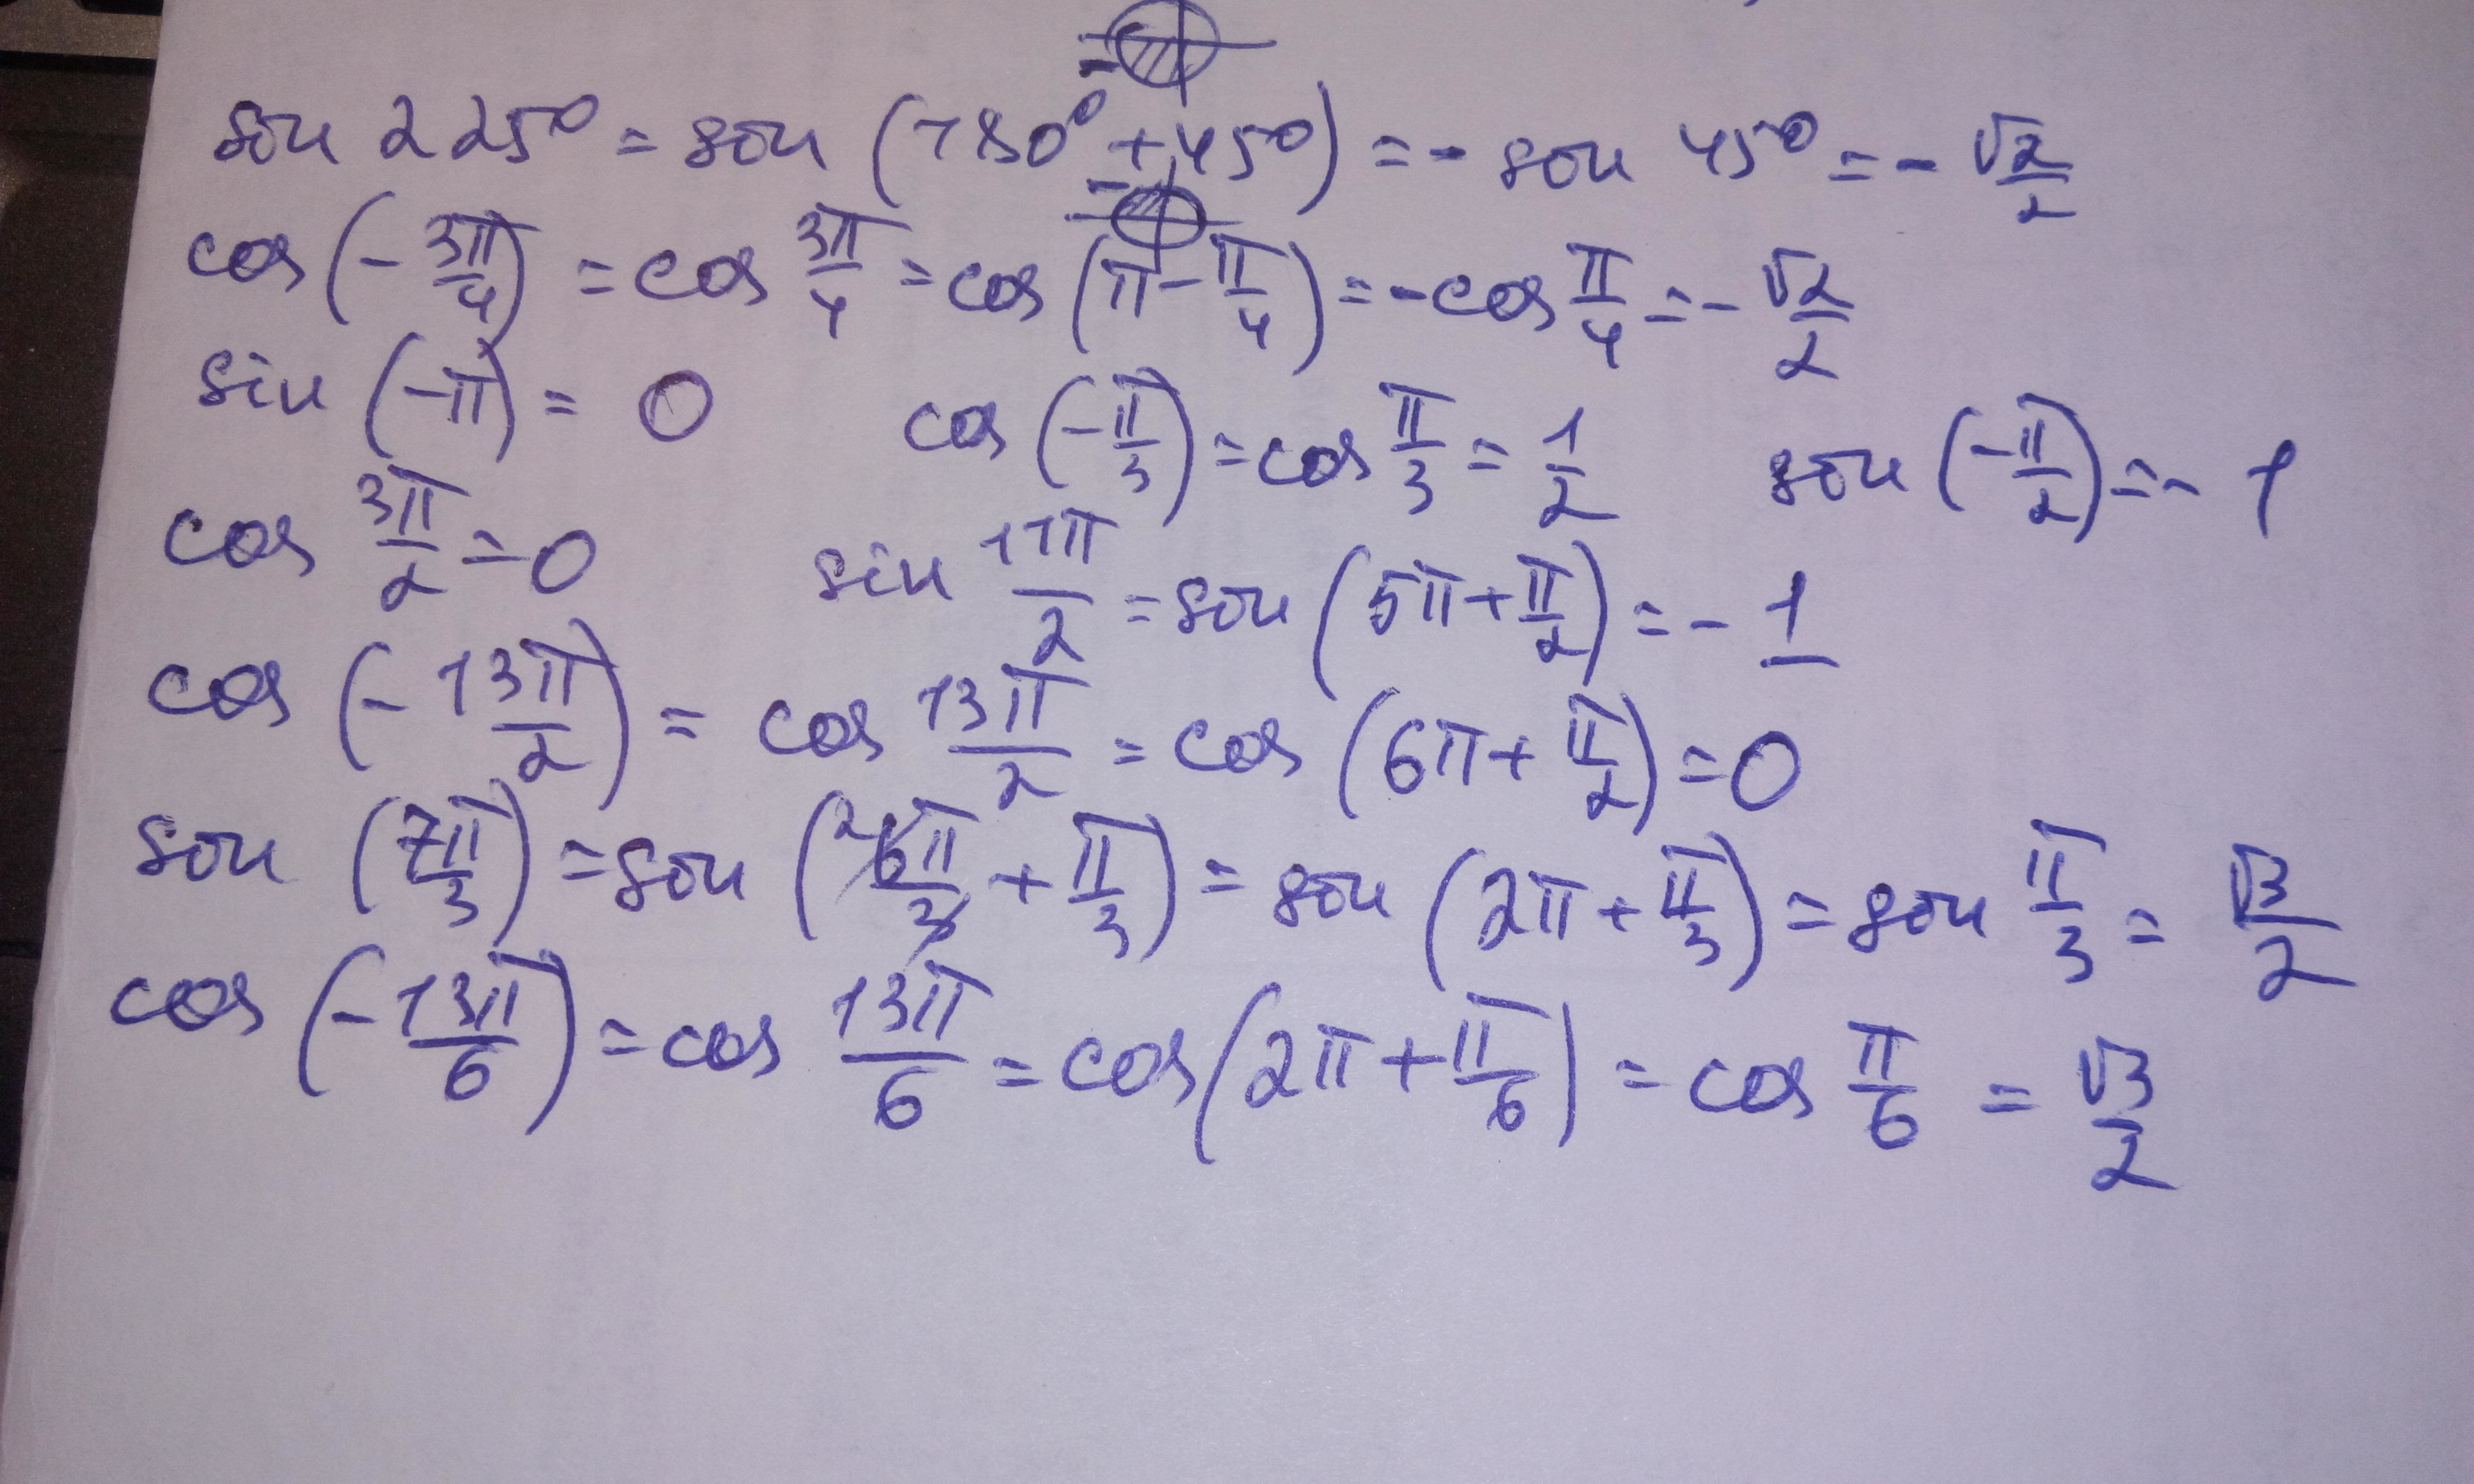 sin 225° = sin (180° + 45°) = - sin 45° = - √2/2
cos (- 3π/4) = cos 3π/4 = cos (π - π/4) = - cos π/4 = - √2/2
sin (-π) = 0 cos (-π/3) = cos π/3 = 1/2 sin (-π/2) = - 1
cos 3π/2 = 0 sin 11π/2 = sin (5π + π/2) = - 1
cos (- 13π/2) = cos 13π/2 = cos (6π + π/2) = 0
sin (7π/3) = sin (6π/3 + π/3) = sin (2π + π/3) = sin π/3 = √3/2
cos (- 13π/6) = cos 13π/6 = cos (2π + π/6) = cos π/6 = √3/2